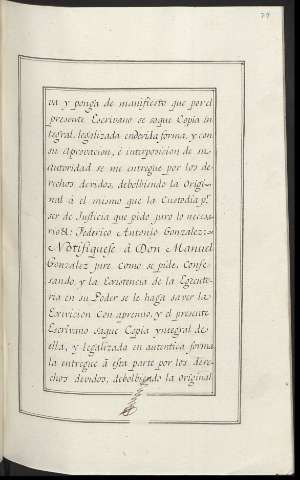 79
va y ponga de manifiesto que por el
presente Escrivano se saque Copia in
tegral, legalizada endevida forma, y con
su Aprovacion, é interposicion de su
autoridad se me entregue por los de-
rechos devidos, debolbiendo la Origi-
nal á el mismo que la Custodia pr.
ser de Justicia que pido, juro lo necesa-
rio &: Federico Antonio Gonzalez:-
Notifiquese á Don Manuel
Gonzalez jure, como se pide, Confe-
sando, y la Existencia de la Egecuto-
ria en su Poder se le haga saver la
Exivicion con apremio, y el presente
Escrivano saque Copia yntegral de
ella, y legalizada en autentica forma
la entregue á esta parte por los dere-
chos devidos, debolbiendo la original